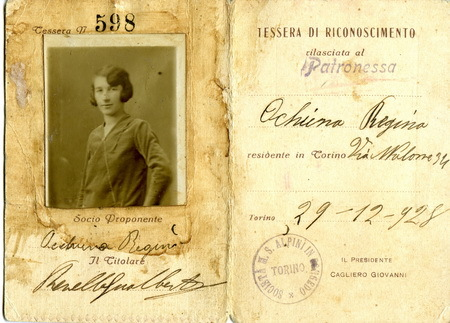 Tessera N. 598
Socio Proponente
Ochiena Regina
Il Titolare
TESSERA DI RICONOSCIMENTO
rilasciata al
Patronessa
Ochiena Regina
residente in Torino Via
Torino 29-12-928
SOCIETÀ M.S. ALPINI IN CONGEDO
TORINO
IL PRESIDENTE
CAGLIERO GIOVANNI